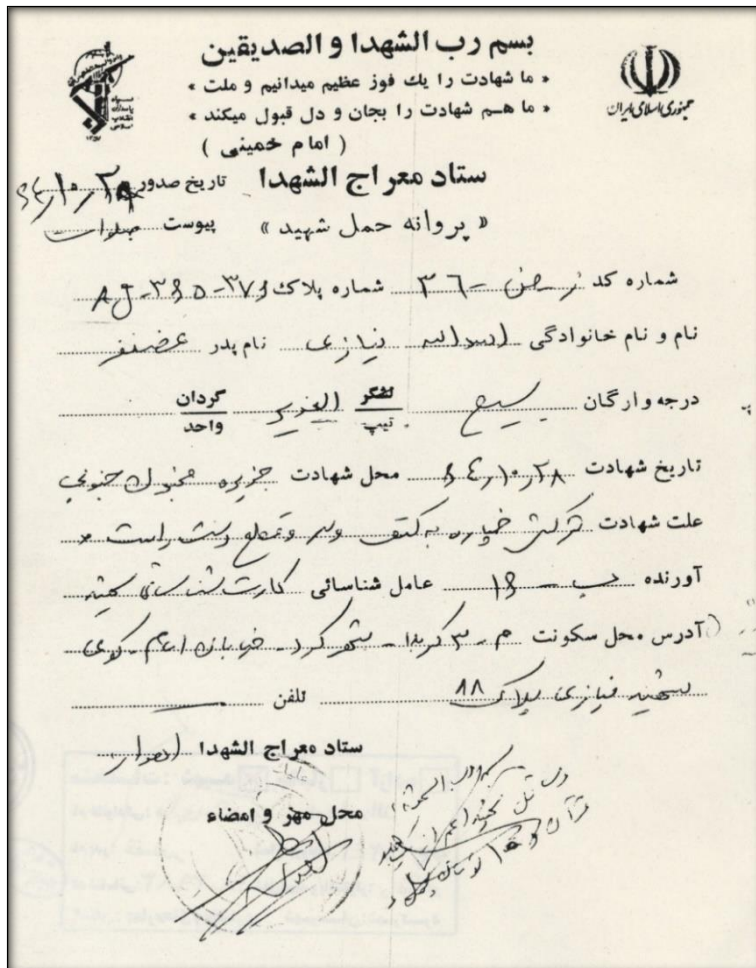 بسم رب الشهدا و الصدیقین
« ما شهادت را یك فوز عظیم میدانیم و ملت »
« ما هـم شهادت را بجان و دل قبول میکند »
( امام خمینی )
جمهوری اسلامی ایران
ستاد معراج الشهدا
تاریخ صدور ۶۴/۱۰/۲۸
« پروانه حمل شهید »
پیوست
شماره کد ۳۶ شماره پلاك AJ-۳۶۵-۳۷۶
نام و نام خانوادگی اسداله نیازی نام پدر غضنفر
درجه و ارگان بسیج لشگر تیپ الغدیر گردان واحد
تاریخ شهادت ۶۴/۱۰/۲۸ محل شهادت جزیره مجنون جنوبی
علت شهادت ترکش خمپاره به کتف وسر و قطع دست راست
آورنده ب - ۱۶ عامل شناسائی کارت شناسائی
آدرس محل سکونت م - ۳ کربلا - شهر کرد - خیابان امام - کوی
شهید نیازی پلاک ۸۸ تلفن
ستاد معراج الشهدا اهواز
محل مهر و امضاء